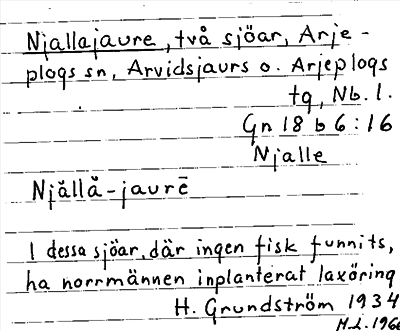 Njallajaure, två sjöar, Arje-
plogs sn, Arvidsjaurs o. Arjeplogs
tg, Nb. l.
Gn 18 b 6:16
Njalle
Njällå-jaurē
I dessa sjöar, där ingen fisk funnits,
ha norrmännen inplanterat laxöring
H. Grundström 1934